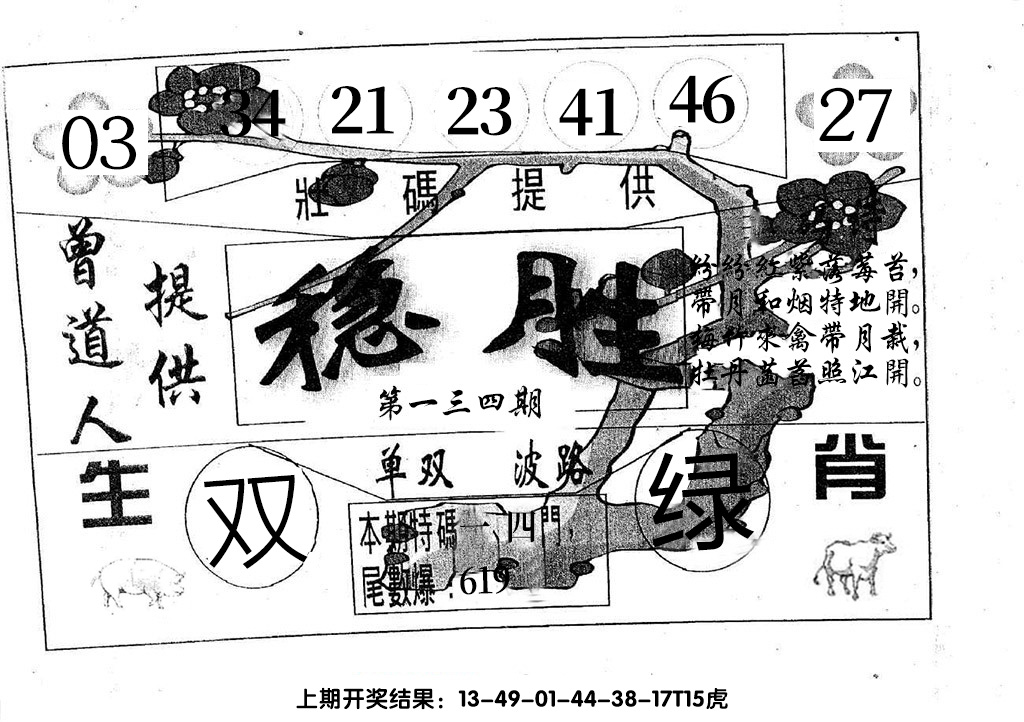 03 34 21 23 41 46 27
壯碼提供
曾道人
提供
特
穩胜
紛紛紅紫落莓苔，
帶月和烟特地開。
梅竹來禽帶月栽，
牡丹菡萏照江開。
第一三四期
单双 波路
生肖
双
绿
本期特碼一、四門，
尾數爆：619
上期开奖结果：13-49-01-44-38-17T15虎